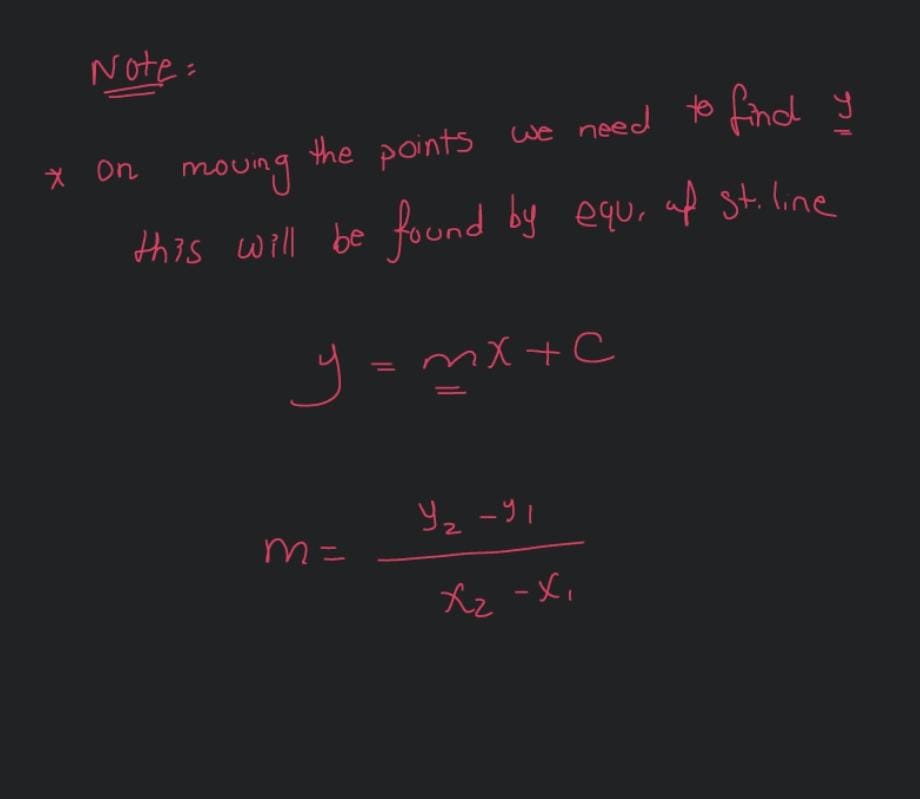 Note:
* on moving the points we need to find y
this will be found by equ. of st. line
y = mx + c
m = y₂ - y₁
x₂ - x₁